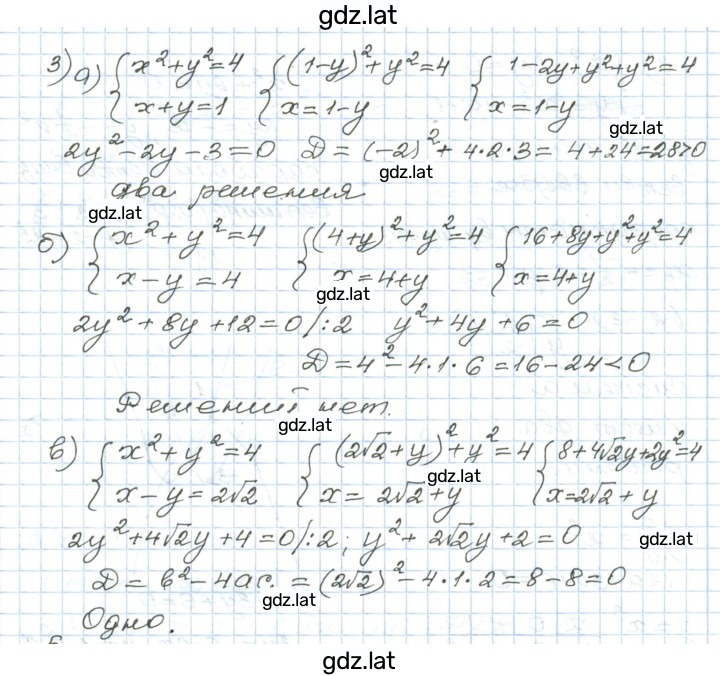 gdz.lat
3) а) { x²+y²=4 { (1-y)²+y²=4 { 1-2y+y²+y²=4
x+y=1 x=1-y x=1-y
gdz.lat
2y²-2y-3=0 D=(-2)²+4·2·3= 4+24=28>0
gdz.lat
два решения
gdz.lat
б) { x²+y²=4 { (4+y)²+y²=4 { 16+8y+y²+y²=4
x-y=4 x=4+y x=4+y
gdz.lat
2y²+8y+12=0/:2 y²+4y+6=0
D=4²-4·1·6=16-24<0
Решений нет.
gdz.lat
в) { x²+y²=4 { (2√2+y)²+y²=4 { 8+4√2y+2y²=4
gdz.lat
x-y=2√2 x=2√2+y x=2√2+y
2y²+4√2y+4=0/:2; y²+2√2y+2=0
gdz.lat
D=b²-4ac.=(2√2)²-4·1·2=8-8=0
gdz.lat
Одно.
gdz.lat